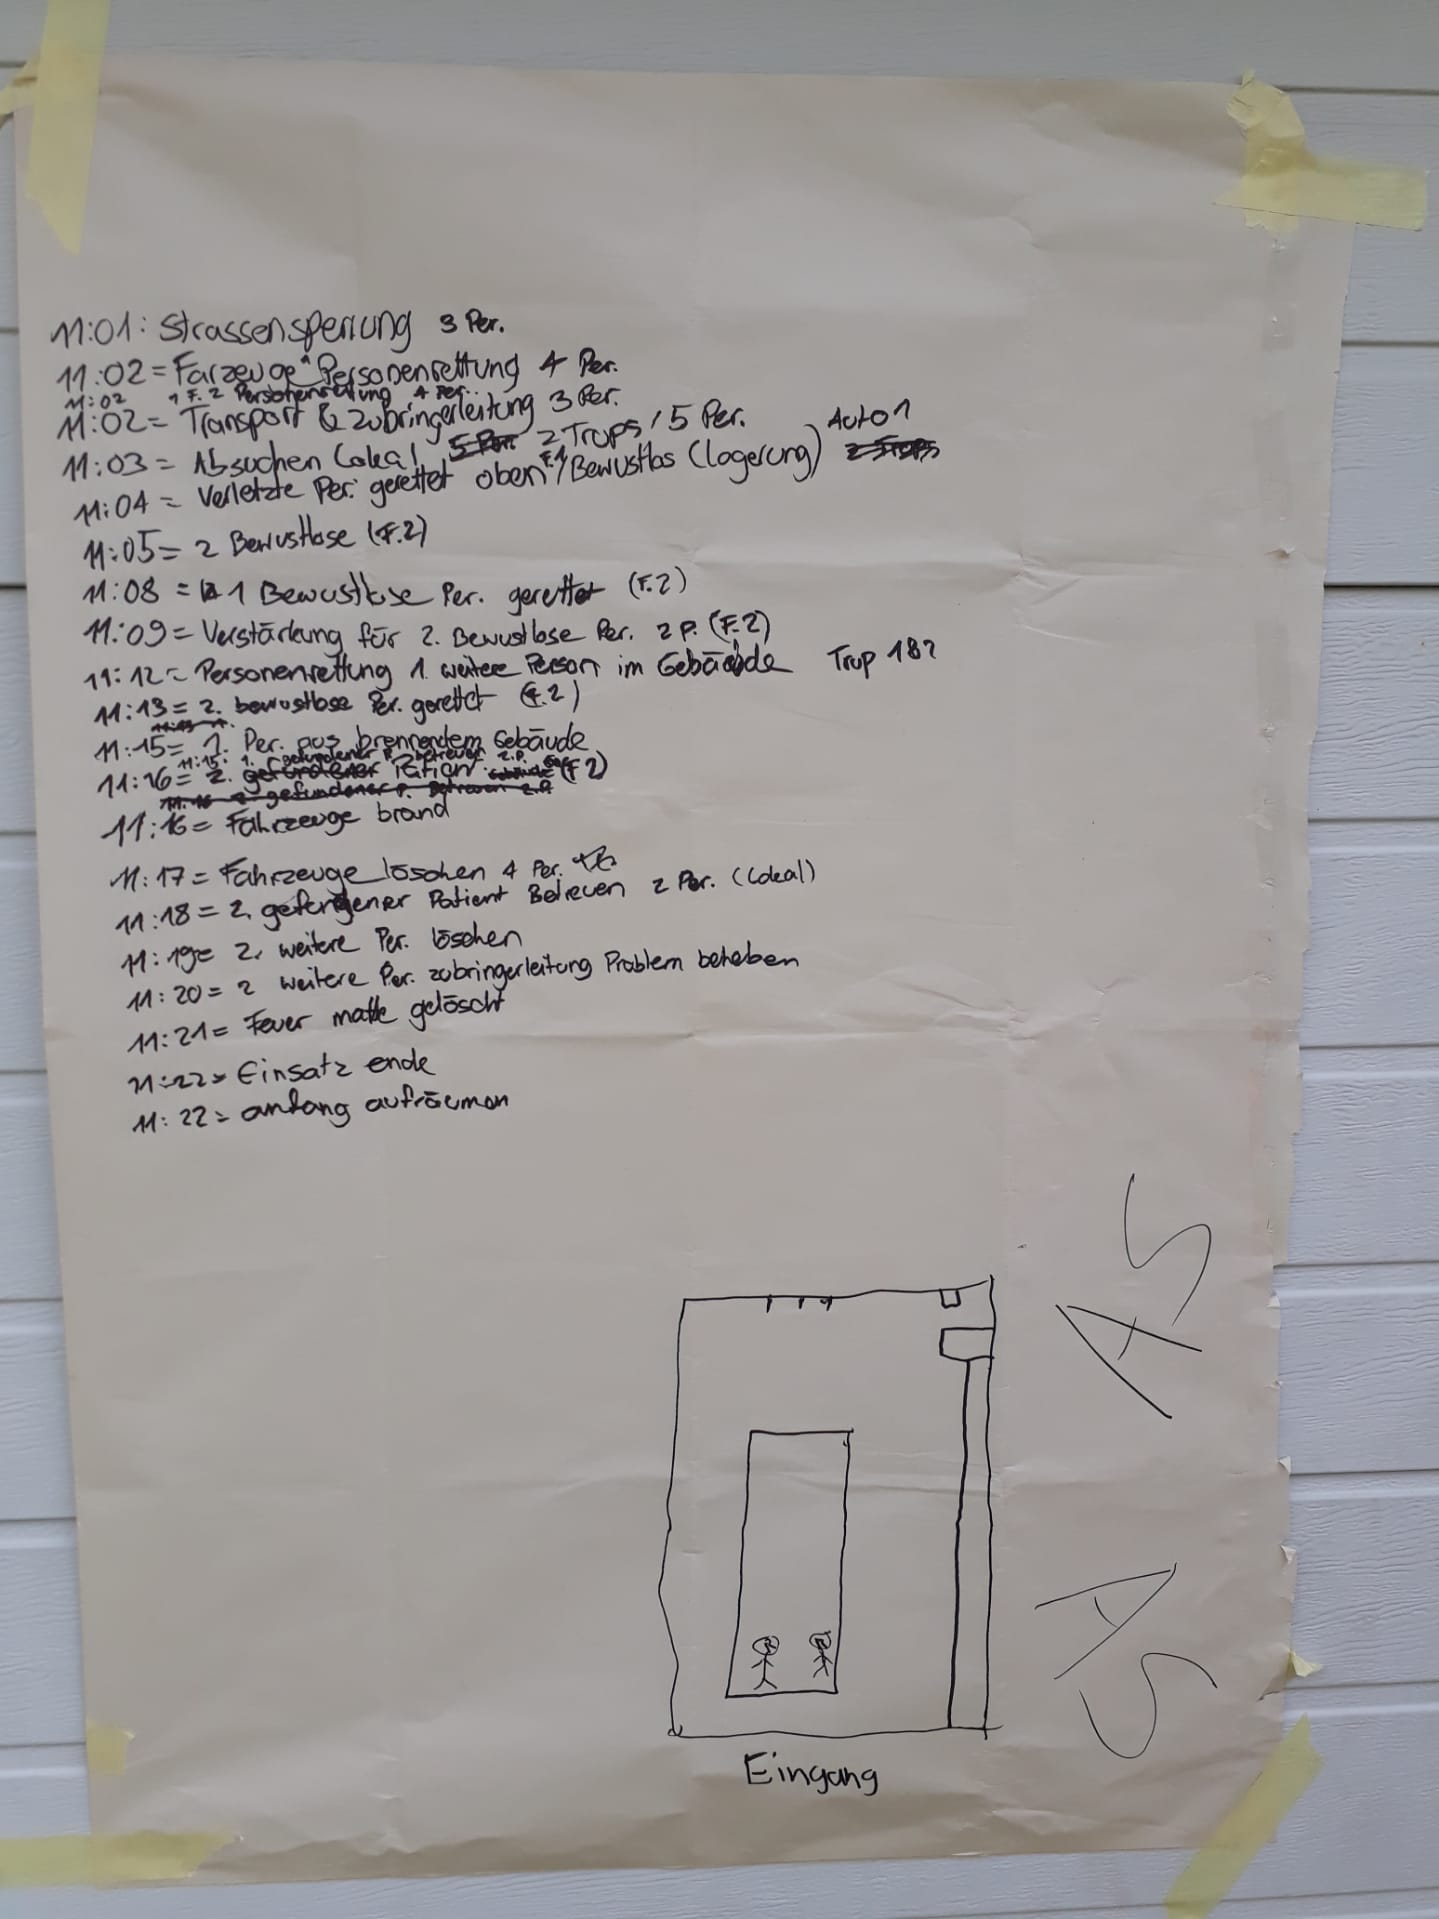 11:01: Strassensperrung 3 Per.
11:02 = Farzeuge 1 Personenrettung 4 Per.
11:02 1 F. 2 Personenrettung 4 Per..
11:02 = Transport & zubringerleitung 3 Per.
11:03 = Absuchen Lokal 5 Per. 2 Trups / 5 Per.
11:04 = Verletzte Per. gerettet oben F.1 / Bewustlos (Lagerung) Auto 1
11:05 = 2 Bewustlose (F.2)
11:08 = 1 Bewustlose Per. gerettet (F.2)
11:09 = Verstärkung für 2. Bewustlose Per. 2 P. (F.2)
11:12 = Personenrettung 1. weitere Person im Gebäude Trup 1&2
11:13 = 2. bewustlose Per. gerettet (F.2)
11:15 = 1. Per. aus brennendem Gebäude
11:15: 1. gefundener P. betreuen 2.P.
11:16 = 2. gefundener Patient (F2)
11:16 2 gefundener P. Betreuen 2.P
11:16 = Fahrzeuge brand
11:17 = Fahrzeuge löschen 4 Per.
11:18 = 2. Patient Betreuen 2 Per. (Lokal)
11:19 = 2. weitere Per. löschen
11:20 = 2 weitere Per. zubringerleitung Problem beheben
11:21 = Feuer gelöscht
11:22 = Einsatz ende
11:22 = anfang aufräumen
AS
AS
Eingang